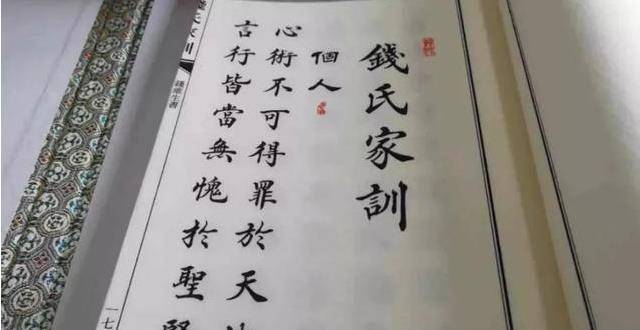 錢氏家訓
個人
心術不可得罪於天
言行皆當無愧於聖賢
錢氏家訓
錢維生書
一七